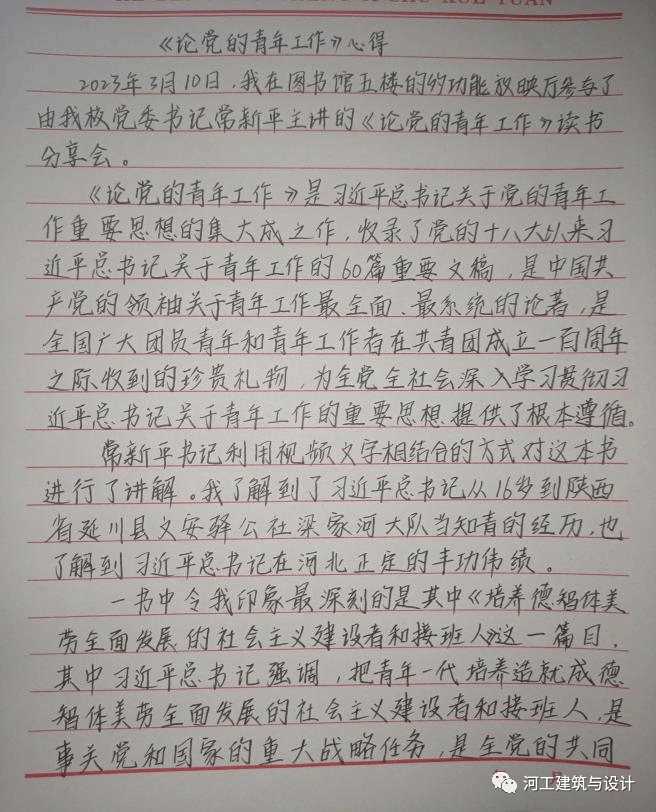 《论党的青年工作》心得
2023年3月10日,我在图书馆五楼的多功能放映厅参与了
由我校党委书记常新平主讲的《论党的青年工作》读书
分享会。
《论党的青年工作》是习近平总书记关于党的青年工
作重要思想的集大成之作,收录了党的十八大以来习
近平总书记关于青年工作的60篇重要文稿,是中国共
产党的领袖关于青年工作最全面、最系统的论著,是
全国广大团员青年和青年工作者在共青团成立一百周年
之际收到的珍贵礼物,为全党全社会深入学习贯彻习
近平总书记关于青年工作的重要思想提供了根本遵循。
常新平书记利用视频文字相结合的方式对这本书
进行了讲解。我了解到了习近平总书记从16岁到陕西
省延川县文安驿公社梁家河大队当知青的经历,也
了解到习近平总书记在河北正定的丰功伟绩。
一书中令我印象最深刻的是其中《培养德智体美
劳全面发展的社会主义建设者和接班人》这一篇目,
其中习近平总书记强调,把青年一代培养造就成德
智体美劳全面发展的社会主义建设者和接班人,是
事关党和国家的重大战略任务,是全党的共同
河工建筑与设计